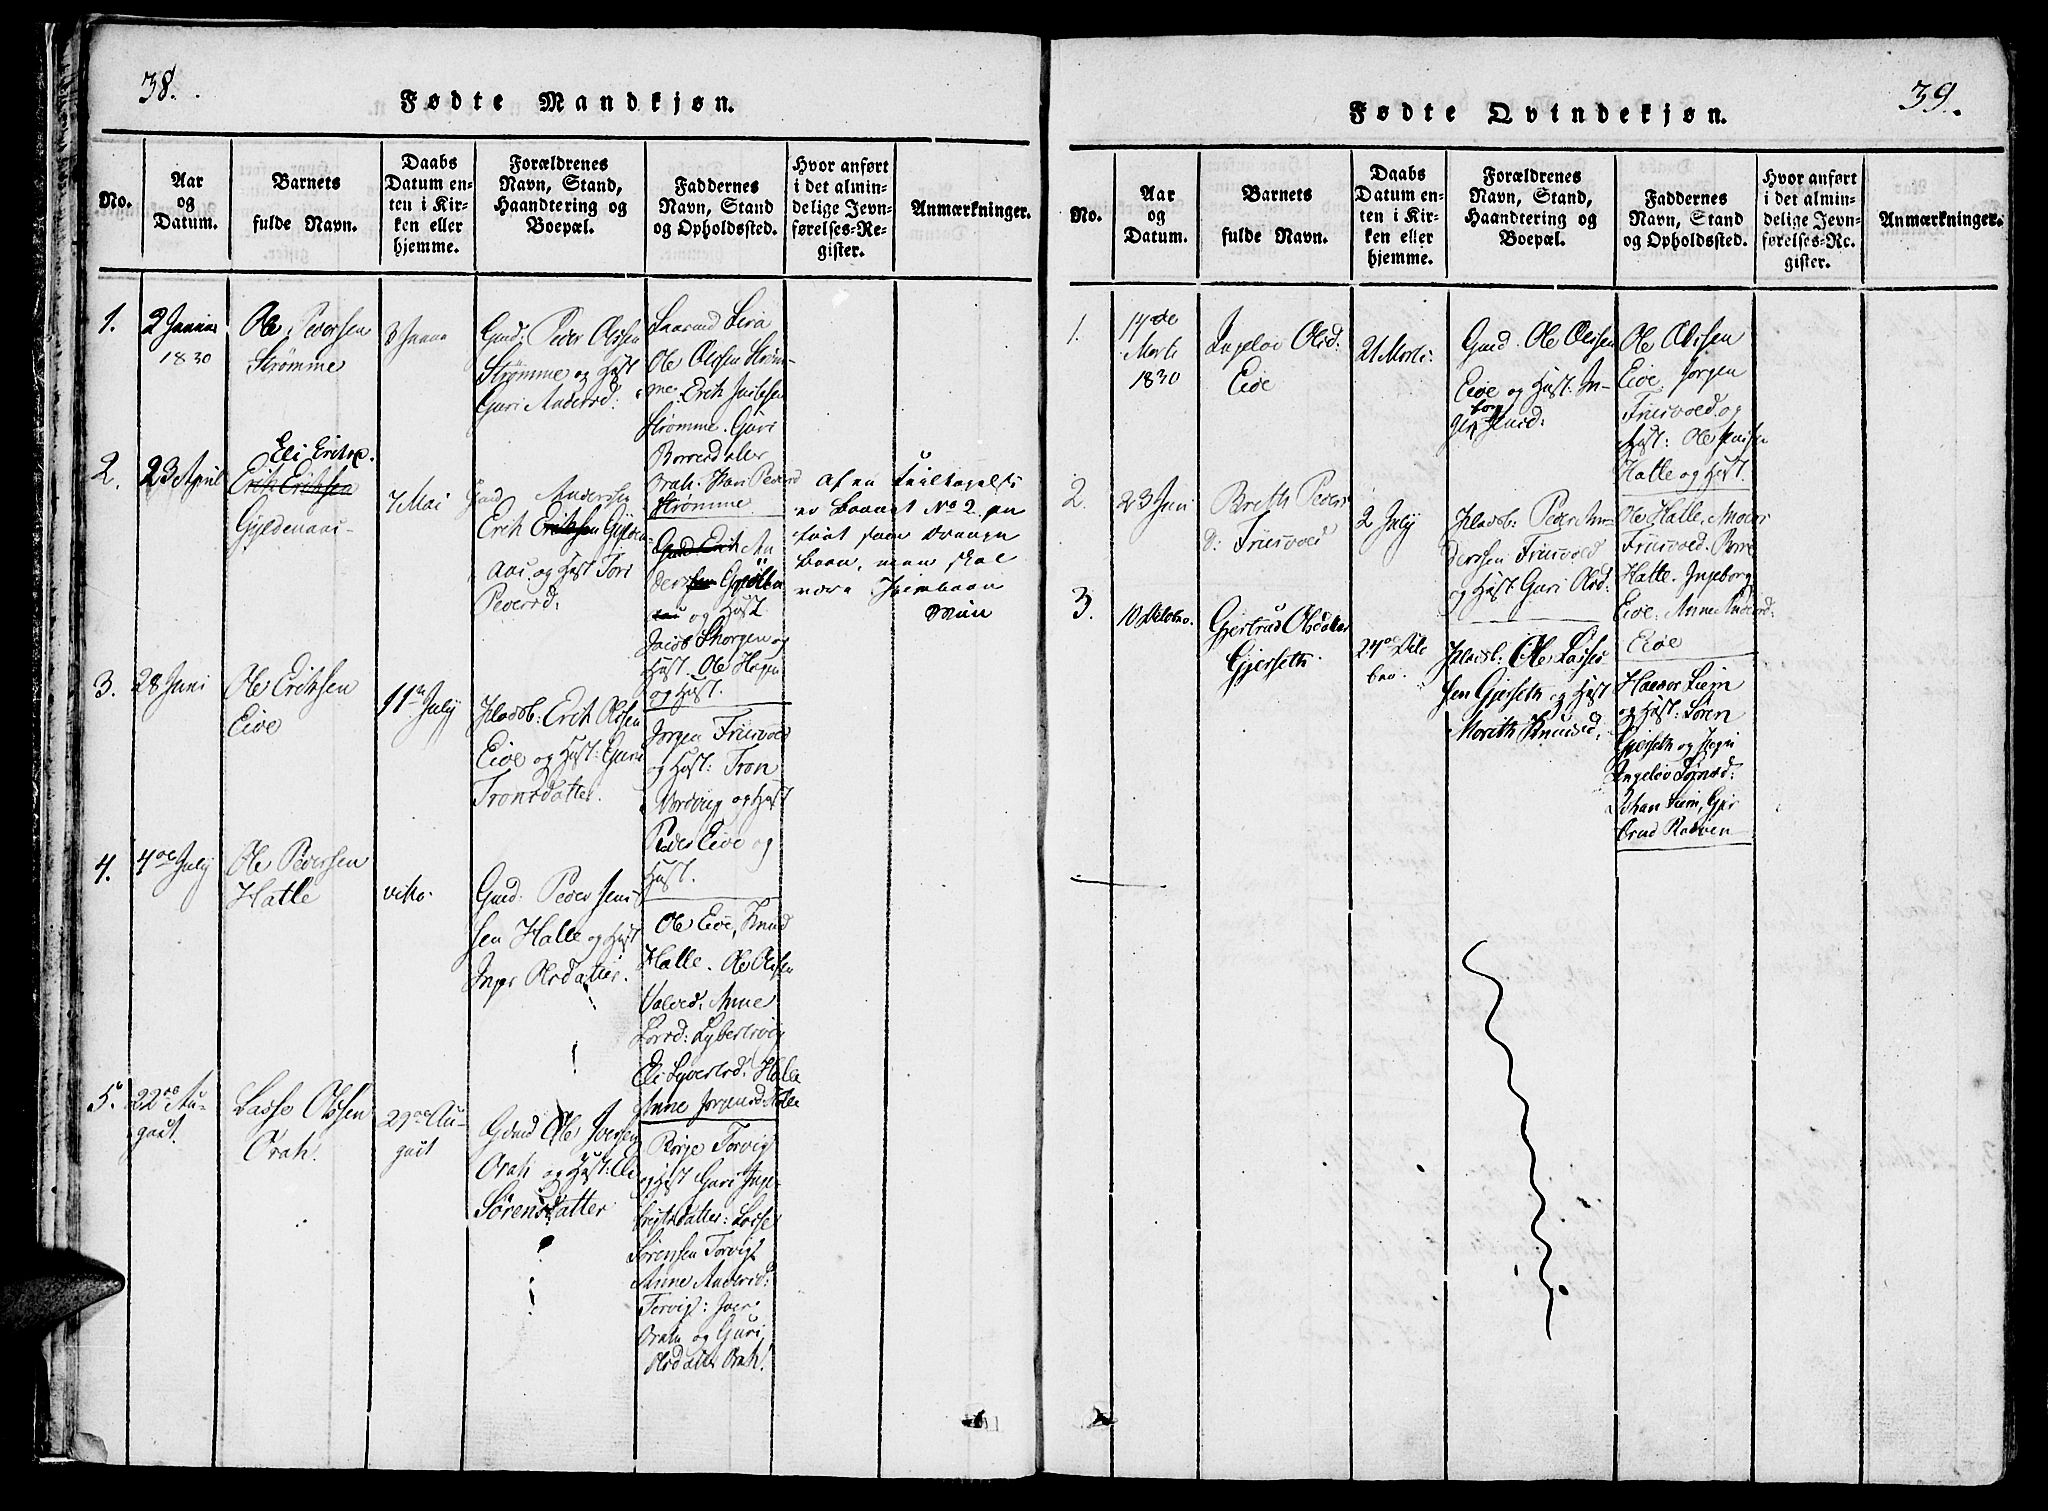 38.
Fødte Mandkjøn.
No.
Aar
og
Datum.
Barnets
fulde Navn.
Daabs
Datum en-
ten i Kir-
ken eller
hjemme.
Forældrenes
Navn, Stand,
Haandtering og
Boepæl.
Faddernes
Navn, Stand
og Opholdssted.
Hvor anført
i det almin-
delige Jevn-
førelses-Re-
gister.
Anmærkninger.
1.
2 Januar
1830
Ole Pedersen
Strømme
Gmd: Peder Olssen
Strømme og Hust
Guri Andersd:
Ole Olssen Strøm-
me. Erik
Strømme. Guri
Orah. Pedersd
Strømme
2.
23 April
Eli Eriks
Erik Eriksen
Gyldenaas
7 Mai
Gmd Andersen
Erik Eriksen Gylden
Aas og Hust Tori
Pedersd:
Gmd Erik An
dersen
og Hust
Jacob Skorgen og
Hust. Ole Hagen
og Hust.
Af en Feiltagelse
er Barnet No 2 an
ført som Drænge
Barn, men skal
være
3.
28 Juni
Ole Eriksen
Eide
11te July
Pladsb: Erik Olssen
Eide og Hust: Guri
Tronsdatter.
Jorgen Friisvold
og Hust: Tron
Nordvig og Hust
Peder Eide og
Hust.
4.
4de July
Ole Pedersen
Hatle
dito.
Gmd: Peder Jens
sen Hatle og Hust
Inger Olsdatter.
Ole Eide, Knud
Hatle. Ole Olssen
Anne
Hatle
Anne Jorgensd: Hatle
5.
22de Au-
gust.
Lasse Olssen
Orah.
29de Au-
gust
Gmd Ole Iversen
Orah og Hust: Eli
Sörensdatter
Torvig
og Hust Guri Inge-
brigtsdatter: Lasse
Sörensen Torvig
Anne Andersd:
Torvig: Iver
Orah og Guri
Olsdatter Orah.
39.
Fødte Qvindekjøn.
No.
Aar
og
Datum.
Barnets
fulde Navn.
Daabs
Datum en-
ten i Kir-
ken eller
hjemme.
Forældrenes
Navn, Stand,
Haandtering og
Boepæl.
Faddernes
Navn, Stand
og Opholdssted.
Hvor anført
i det almin-
delige Jevn-
førelses-Re-
gister.
Anmærkninger.
1.
14de
Marts
1830
Ingeloe Olsd:
Eide
21 Marts:
Gmd. Ole Olssen
Eide og Hust: In-
ge
Ole Olssen
Eide, Jorgen
Friisvold og
Hust: Ole Jenssen
Hatle og Hust.
2.
23 Juni
Breth Peders
d: Friisvold
2 July
Pladsb: Peder An-
derssen Friisvold
og Hust Guri Olsd:
Ole Hatle, Anders
Friisvold.
Hatle. Ingeborg
Eide. Anne Andersd:
Eide
3.
10 Octobr.
Gjertrud Olsdatter
Gjerseth.
24de Octo
ber.
Pladsb: Ole Lasse
sen Gjerseth og Hust
Marith Knudsd.
og Hust: Sören
Gjerseth og
Ingeloe
Johan Gjer
trud Rødven